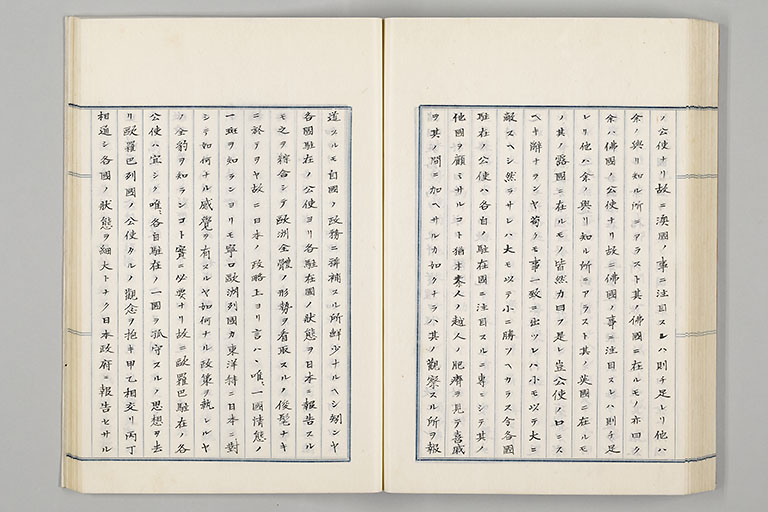 ノ公使ナリ故ニ澳國ノ事ニ注目スレハ則チ足レリ他ハ
余ノ與リ知ル所ニアラスト其ノ佛國ニ在ルモノ亦曰ク
余ハ佛國ノ公使ナリ故ニ佛國ノ事ニ注目スレハ則チ足
レリ他ハ余ノ與リ知ル所ニアラスト其ノ英國ニ在ルモ
ノ其ノ露國ニ在ルモノ皆然カ曰フ是レ豈公使ノ口ニス
ヘキ辭ナランヤ苟クモ事一致ニ出ツレハ小モ以テ大ニ
敵スヘシ然ラサレハ大モ以テ小ニ勝ツヘカラス今各國
駐在ノ公使ハ各自ノ駐在國ニ注目スルニ專ニシテ其ノ
他國ヲ顧ミサルコト猶本秦人ノ越人ノ肥瘠ヲ見テ喜戚
ヲ其ノ間ニ加ヘサルカ如クナラハ其ノ觀察スル所ヲ報
道スルモ自國ノ政務ニ裨補スル所鮮少ナルヘシ矧ンヤ
各國駐在ノ公使ヨリ各駐在國ノ狀態ヲ日本ニ報告スル
モ之ヲ綜合シテ歐洲全體ノ形勢ヲ看取スルノ俊髦ナキ
ニ於テヲヤ故ニ日本ノ政略上ヨリ言ハヽ唯、一國情態ノ
一斑ヲ知ランヨリモ寧ロ歐洲列國カ東洋特ニ日本ニ對
シテ如何ナル感覺ヲ有スルヤ如何ナル政策ヲ執レルヤ
ノ全豹ヲ知ランコト實ニ必要ナリ故ニ歐羅巴駐在ノ各
公使ハ宜シク唯、各自駐在ノ一國ヲ孤守スルノ思想ヲ去
リ歐羅巴列國ノ公使タルノ觀念ヲ抱キ甲乙相交リ丙丁
相通シ各國ノ狀態ヲ細大トナク日本政府ニ報告セサル